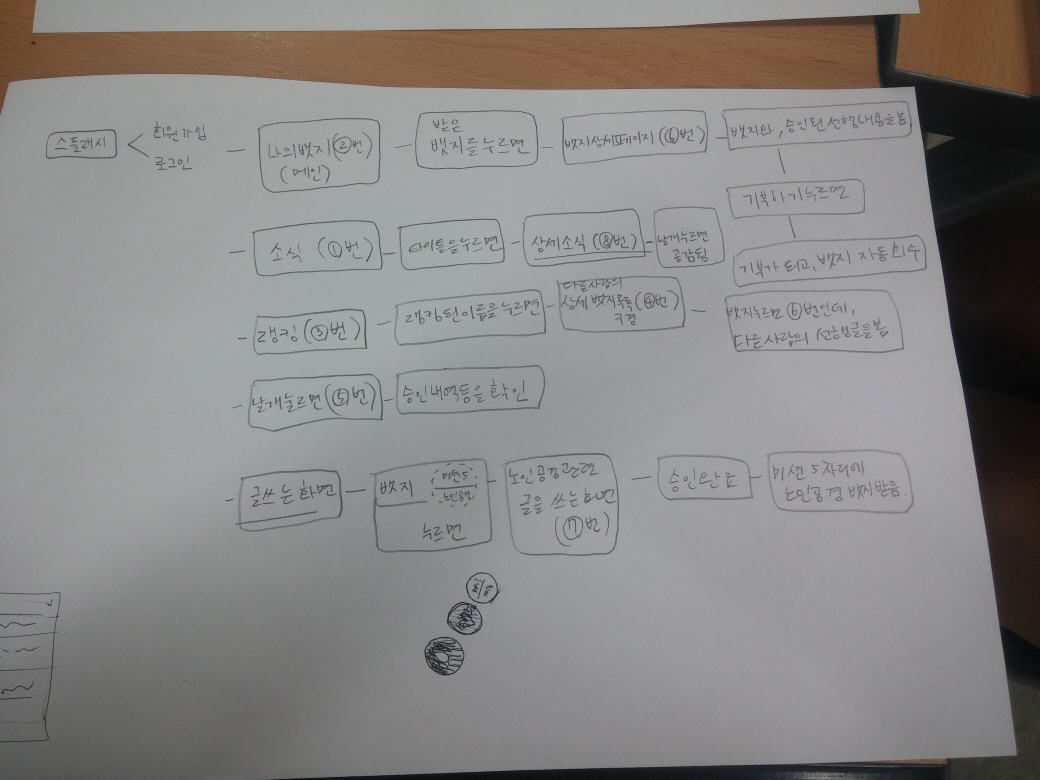 스플래시
회원가입
로그인
나의뱃지(②번)
(메인)
받은
뱃지를누르면
뱃지상세페이지(⑥번)
뱃지와, 승인된선행내용을봄
기부하기누르면
기부가 되고, 뱃지 자동회수
소식 (①번)
타이틀을누르면
상세소식 (⑧번)
날개누르면
공감됨
랭킹(③번)
랭킹된이름을누르면
다른사람의
상세 뱃지목록(④번)
구경
뱃지누르면 ⑥번인데,
다른사람의 선행글을봄.
날개누르면(⑤번)
승인내역등을확인
글쓰는화면
뱃지
미션5
노인공경
누르면
노인공경관련
글을 쓰는화면
(⑦번)
승인완료
미션 5 자리에
노인공경 뱃지받음.